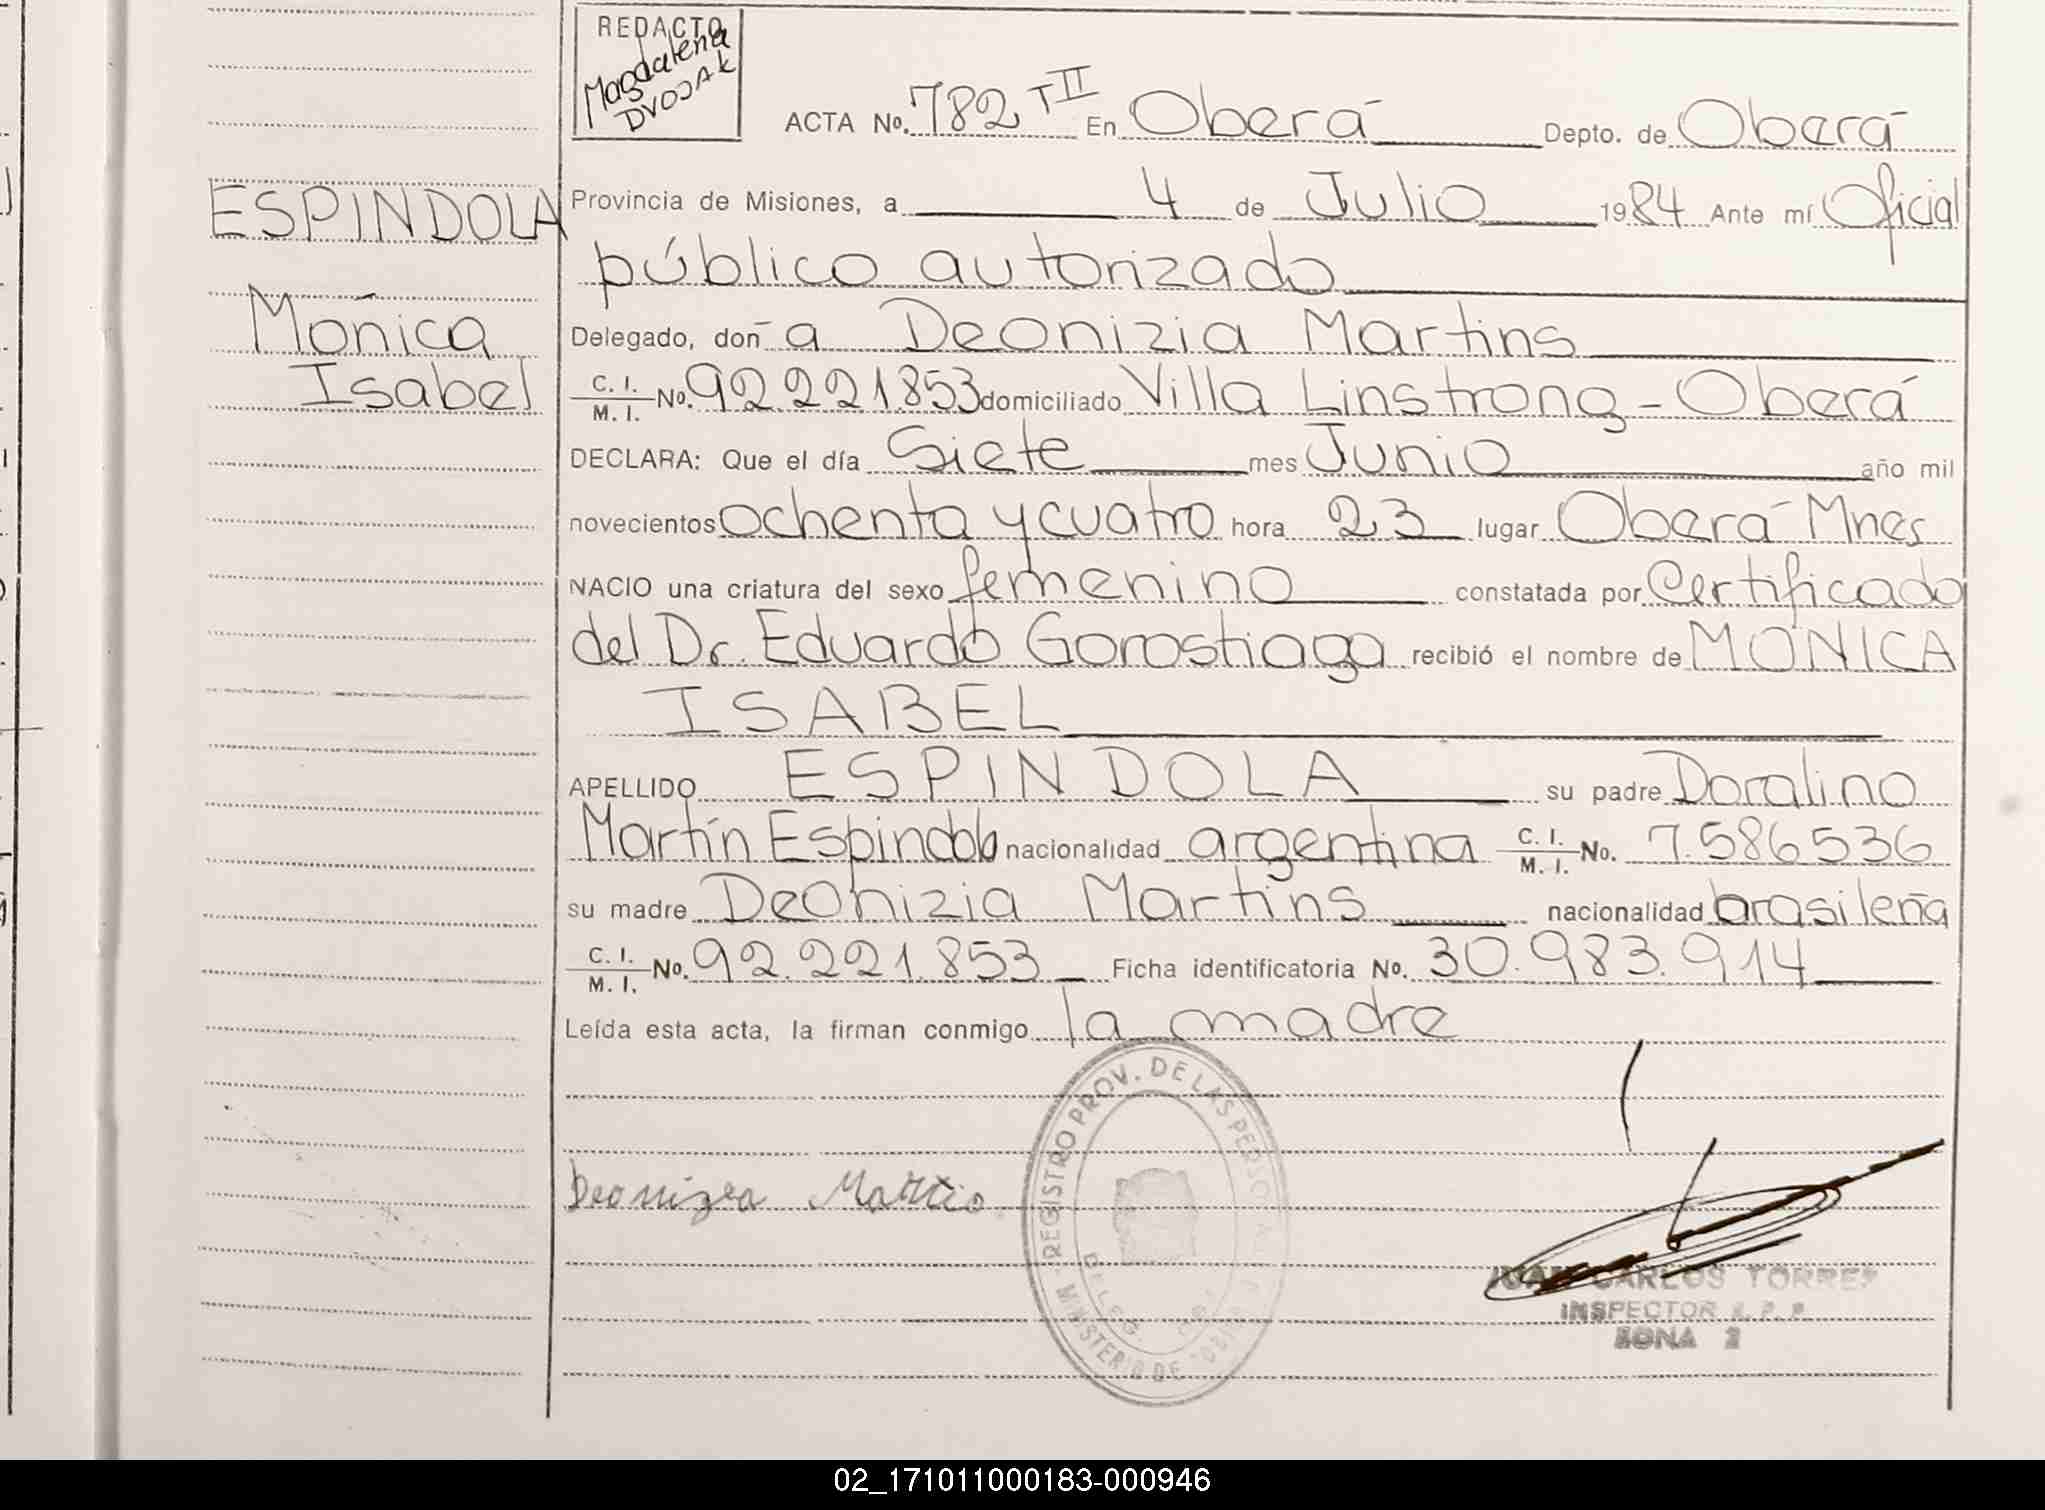 REDACTO
Magdalena
DVOJAK
ACTA No. 782 TII En Oberá Depto. de Oberá
ESPINDOLA
Mónica
Isabel
Provincia de Misiones, a 4 de Julio 1984 Ante mí Oficial
público autorizado
Delegado, doña Deonizia Martins
C. I. / M. I. No. 92.221.853 domiciliado Villa Linstrong - Oberá
DECLARA: Que el día Siete mes Junio año mil
novecientos ochenta y cuatro hora 23 lugar Oberá Mnes
NACIO una criatura del sexo femenino constatada por Certificado
del Dr. Eduardo Gorostiaga recibió el nombre de MONICA
ISABEL
APELLIDO ESPINDOLA su padre Doralino
Martín Espindola nacionalidad argentina C. I. / M. I. No. 7.586536
su madre Deonizia Martins nacionalidad brasileña
C. I. / M. I. No. 92.221.853 Ficha identificatoria No. 30.983.914
Leída esta acta, la firman conmigo la madre
REGISTRO PROV. DE LAS PERSONAS
MINISTERIO DE
DELEG.
JUAN CARLOS TORRES
INSPECTOR R. P. P.
ZONA 2
02_171011000183-000946